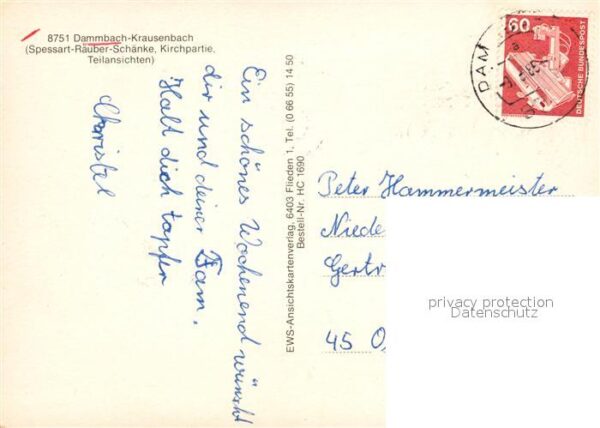 8751 Dammbach-Krausenbach
(Spessart-Räuber-Schänke, Kirchpartie,
Teilansichten)
Ein schönes Wochenend wünscht
dir und deiner Fam.
Halt dich tapfer
Christel
EWS-Ansichtskartenverlag, 6403 Flieden 1, Tel. (0 66 55) 14 50
Bestell-Nr. HC 1690
60
DEUTSCHE BUNDESPOST
DAM
Peter Hammermeister
Niede
Gertr
45 O
privacy protection
Datenschutz